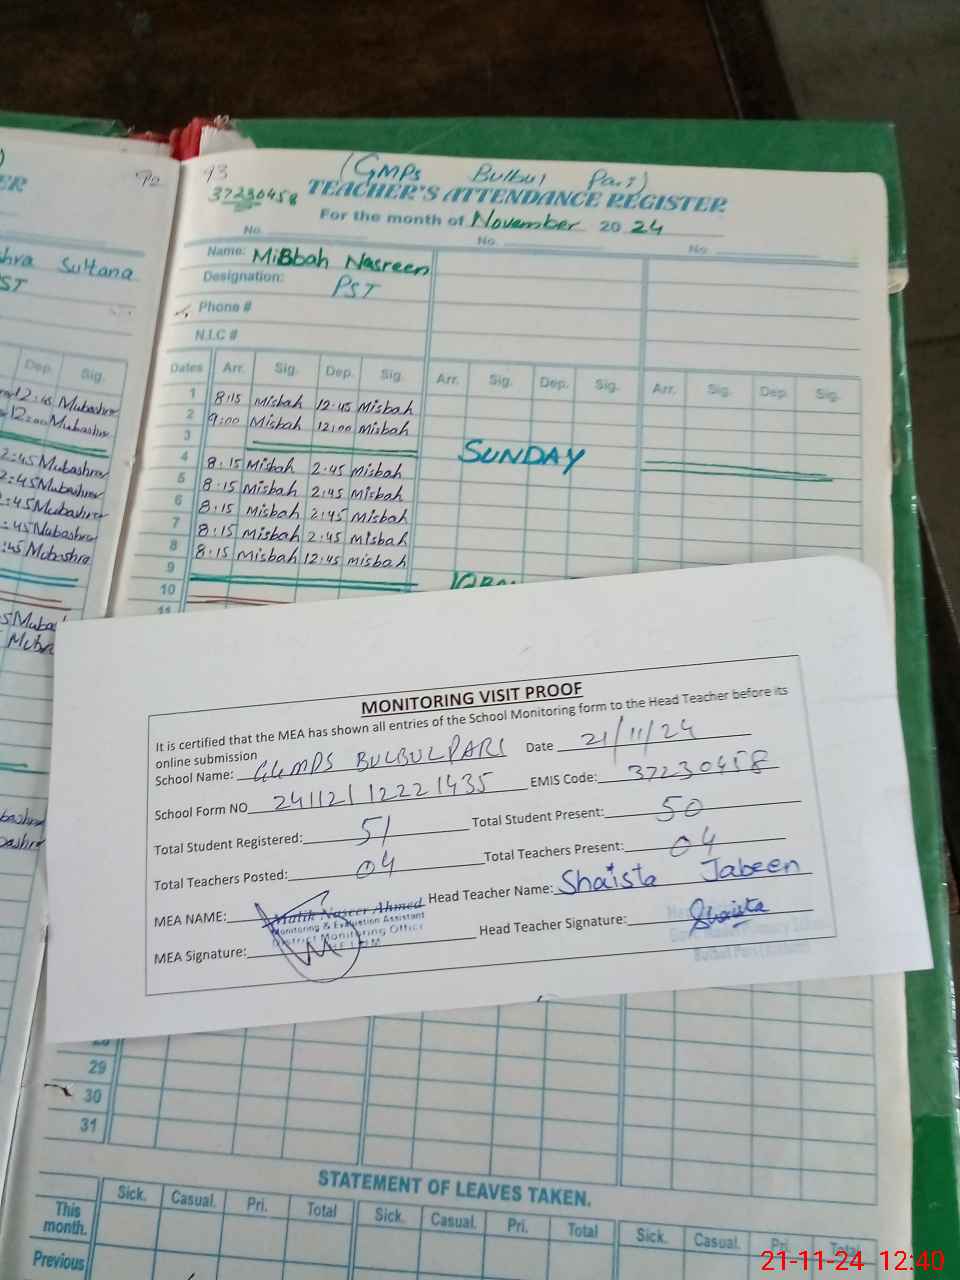 92
ER
hra Sultana
ST
Dep. Sig.
12:45 Mubashra
12:00 Mubashra
2:45 Mubashra
2:45 Mubashra
2:45 Mubashra
:45 Mubashra
:45 Mubashra
93 (GMPS Bulbul Pari)
37230458 TEACHER'S ATTENDANCE REGISTER
For the month of November 2024
No. No. No.
Name: Misbah Nasreen
Designation: PST
Phone #
N.I.C #
Dates Arr. Sig. Dep. Sig. Arr. Sig. Dep. Sig. Arr. Sig. Dep. Sig.
1 8:15 Misbah 12:45 Misbah
2 9:00 Misbah 12:00 Misbah
3 SUNDAY
4 8:15 Misbah 2:45 Misbah
5 8:15 Misbah 2:45 Misbah
6 8:15 Misbah 2:45 Misbah
7 8:15 Misbah 2:45 Misbah
8 8:15 Misbah 12:45 Misbah
9
10
11
MONITORING VISIT PROOF
It is certified that the MEA has shown all entries of the School Monitoring form to the Head Teacher before its
online submission
School Name: GGMPS BULBULPARI Date 21/11/24
School Form NO 24112112221435 EMIS Code: 37230458
Total Student Registered: 51 Total Student Present: 50
Total Teachers Posted: 04 Total Teachers Present: 04
MEA NAME: Malik Naseer Ahmed Head Teacher Name: Shaista Jabeen
Monitoring & Evaluation Assistant
District Monitoring Officer
MEA Signature: Head Teacher Signature: Shaista
29
30
31
STATEMENT OF LEAVES TAKEN.
Sick. Casual. Pri. Total Sick. Casual. Pri. Total Sick. Casual. Pri. Total
This month.
Previous
21-11-24 12:40